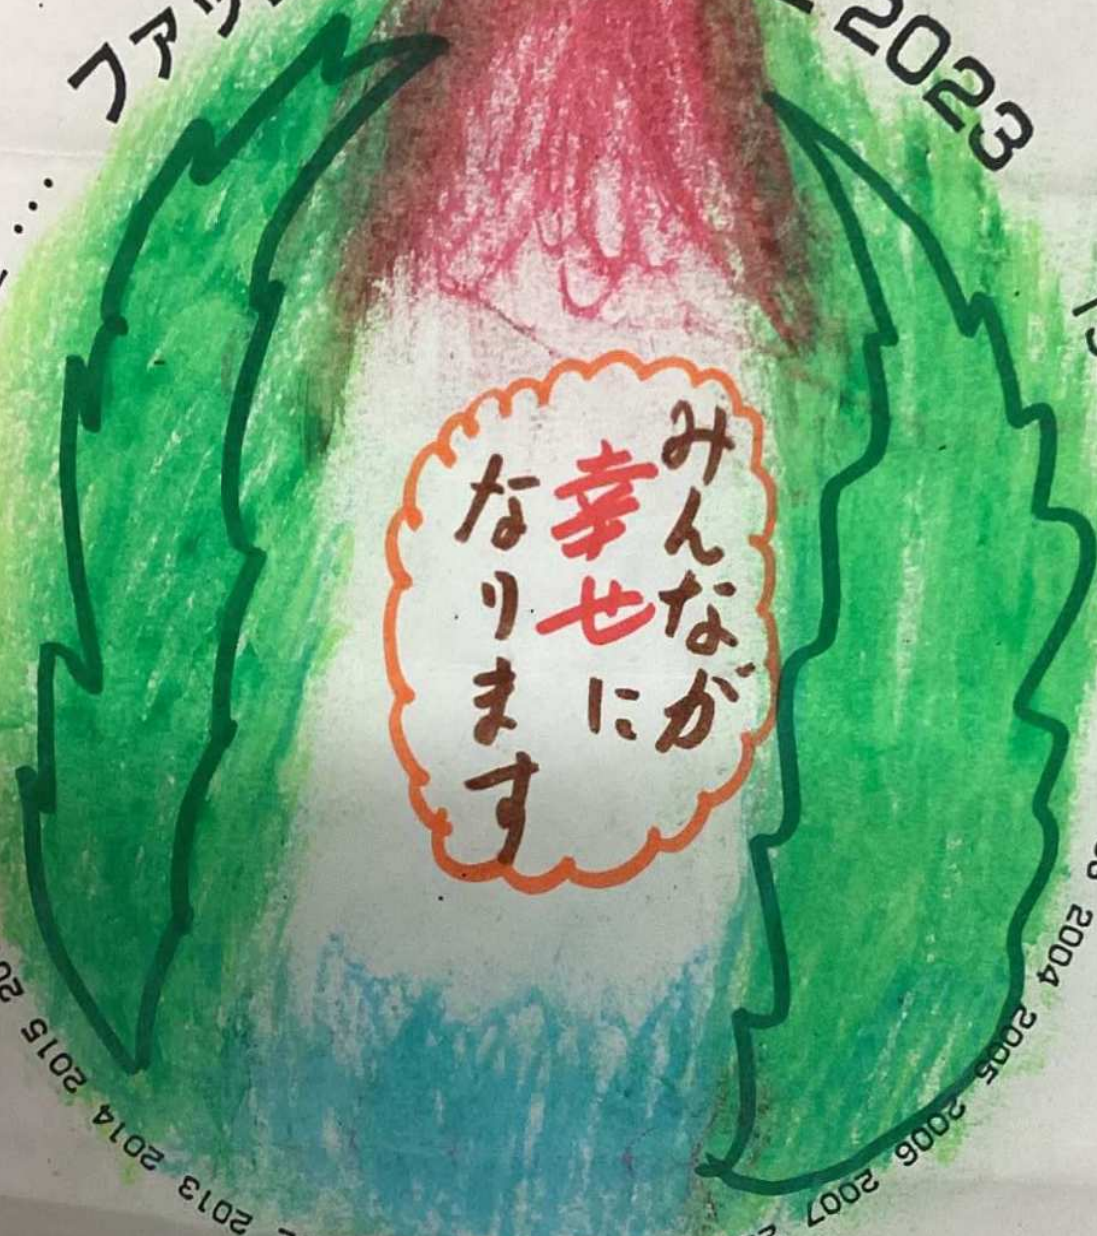 ファッ
2023
みんなが
幸せに
なります
2004
2005
2006
2007
2013
2014
2015